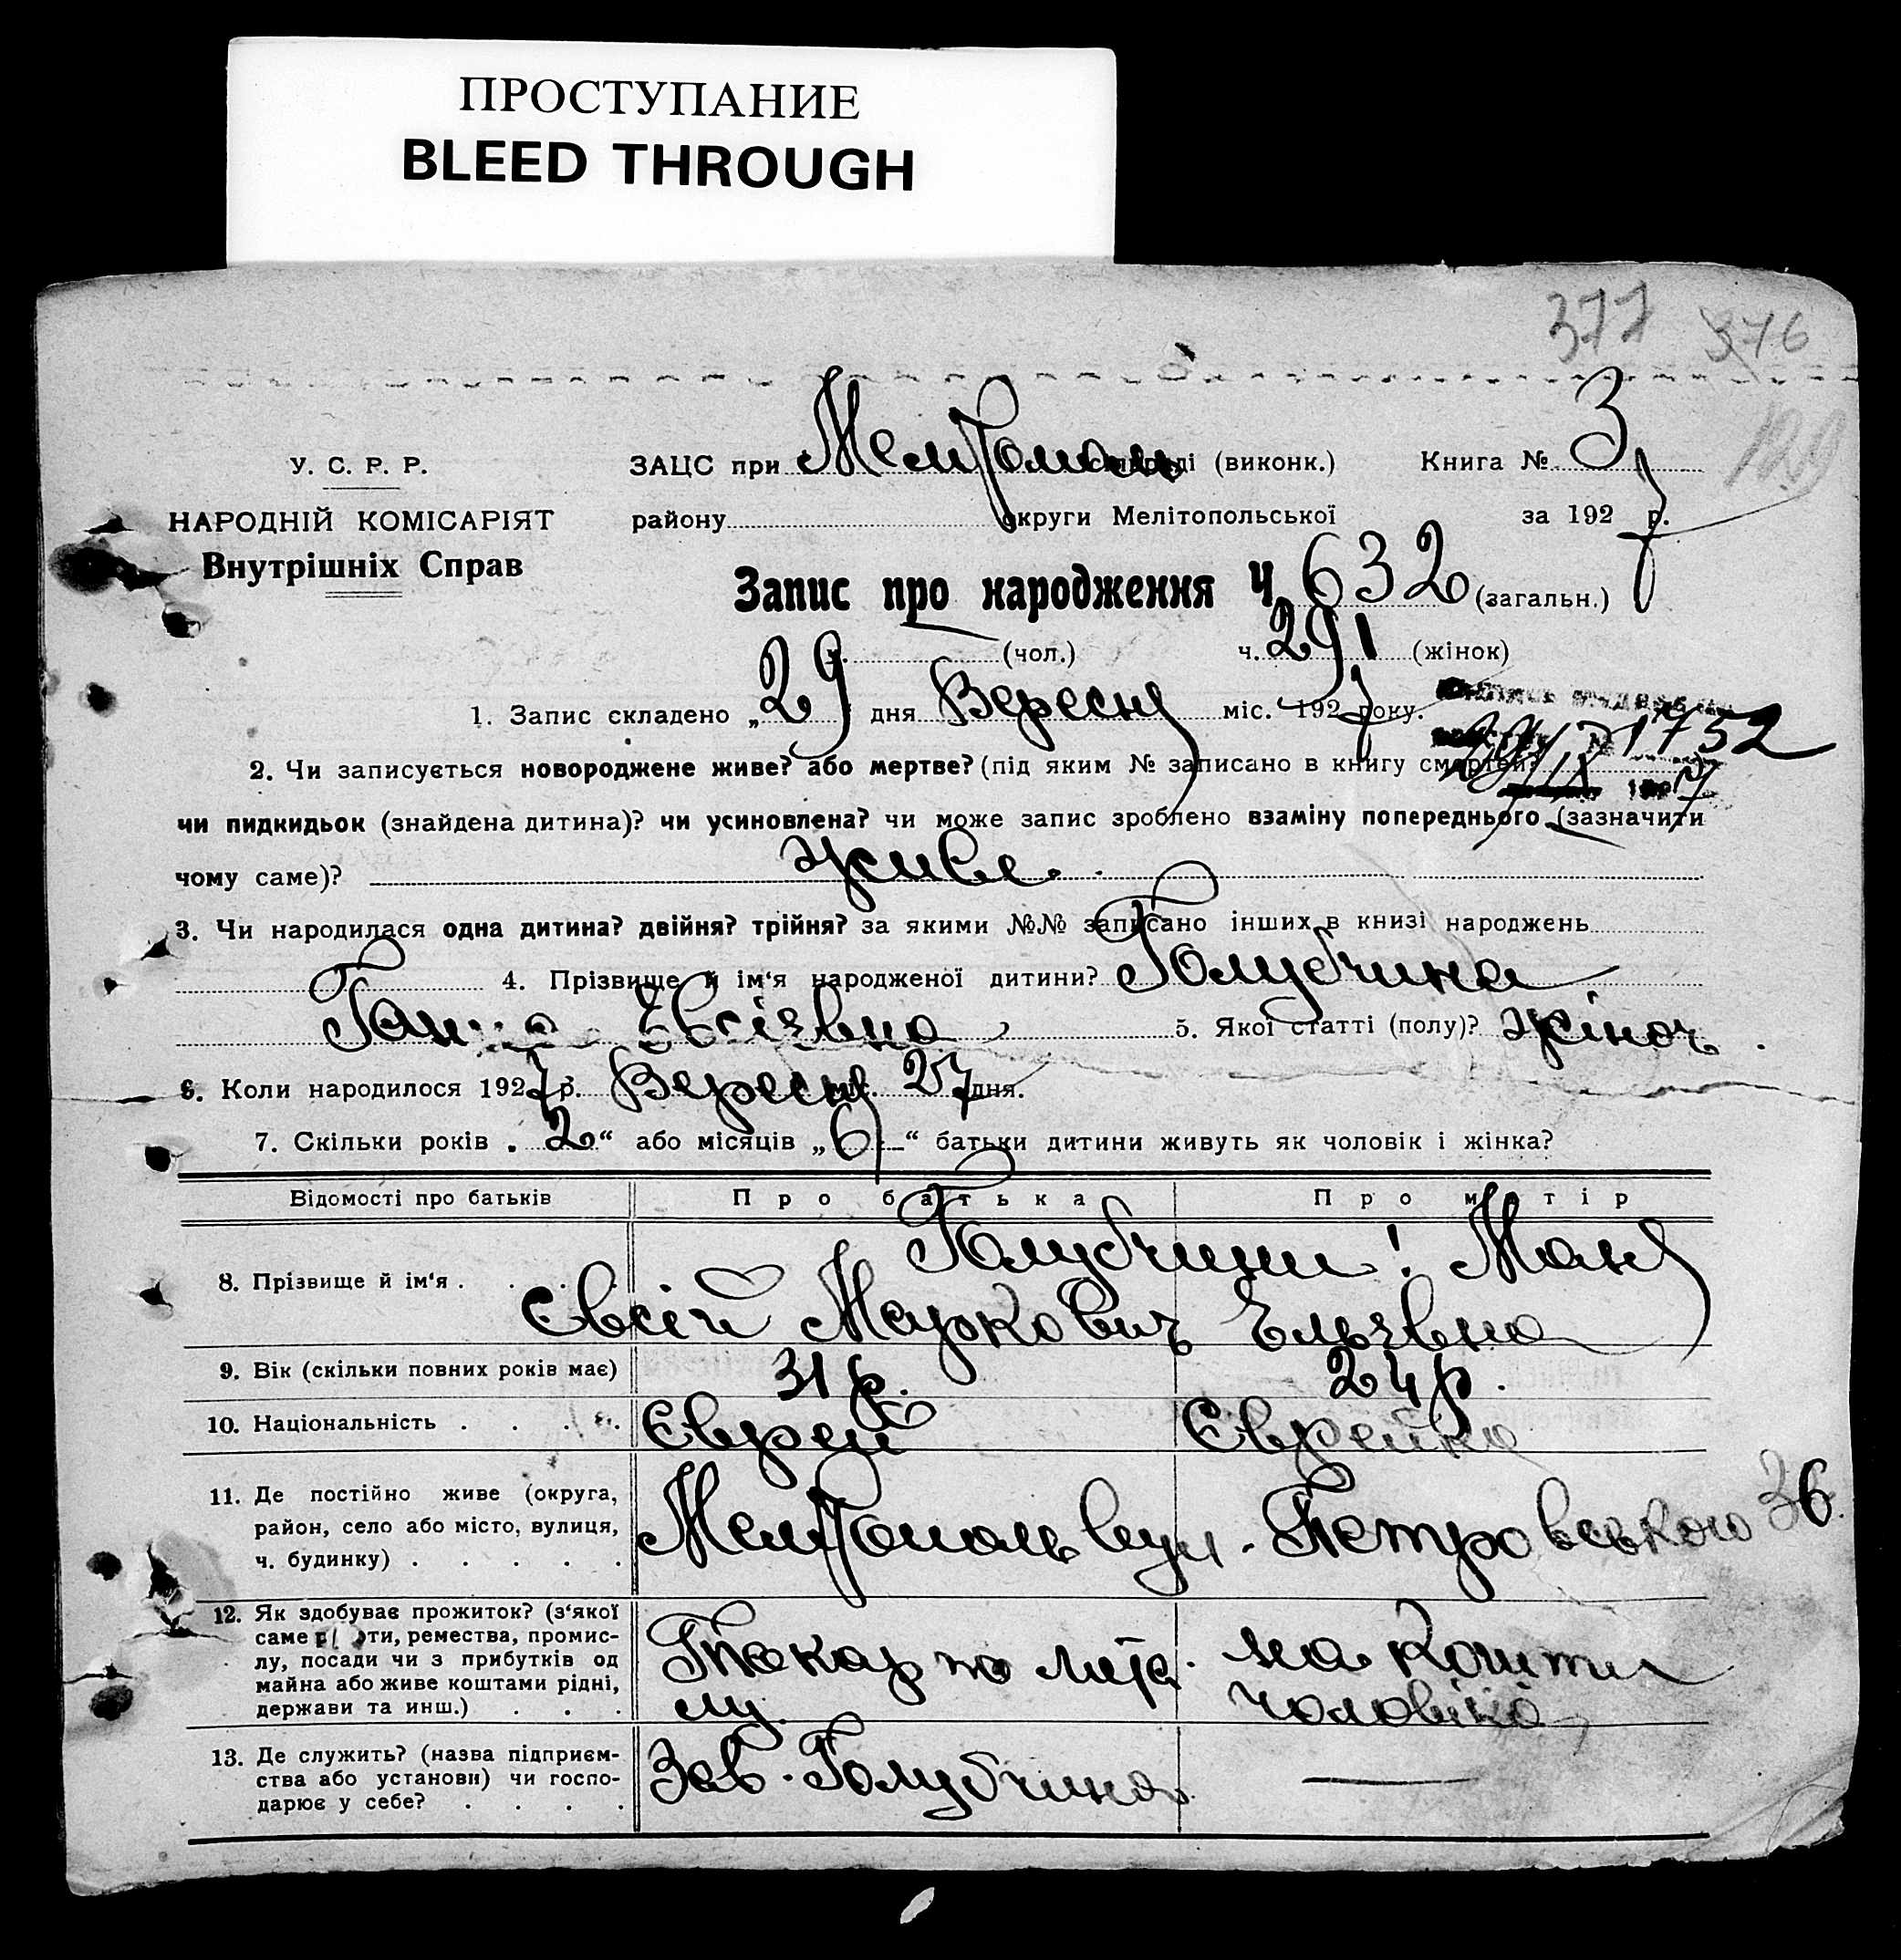 ПРОСТУПАНИЕ
BLEED THROUGH
377 376
129
У. С. Р. Р. ЗАЦС при Мелітополь ськраді (виконк.) Книга № 3
НАРОДНІЙ КОМІСАРІЯТ району округи Мелітопольської за 1927 р.
Внутрішніх Справ
Запис про народження Ч 632 (загальн.)
(чол.) ч. 291 (жінок)
1. Запис складено „29 дня Вересня міс. 1927 року.
№ 1752
2. Чи записується новороджене живе? або мертве? (під яким № записано в книгу смертей
29/IX 1927
чи пидкидьок (знайдена дитина)? чи усиновлена? чи може запис зроблено взаміну попереднього (зазначити
чому саме)? живе.
3. Чи народилася одна дитина? двійня? трійня? за якими №№ записано інших в книзі народжень
4. Прізвище й ім‘я народженої дитини? Голубчина
Ганна Євсіївна 5. Якої статті (полу)? жіноч.
6. Коли народилося 1927 р. Вересня міс. 27 дня.
7. Скільки років „2“ або місяців „6“ батьки дитини живуть як чоловік і жінка?
Відомості про батьків Про батька Про матір
8. Прізвище й ім‘я . . . . Голубчини! Маня
Євсій Маркович Ельївна
9. Вік (скільки повних років має) 31 р. 24 р.
10. Національність . . . . Єврей Єврейка
11. Де постійно живе (округа,
район, село або місто, вулиця,
ч. будинку) . . . . . Мелітополь вул. Петровського 36.
12. Як здобуває прожиток? (з‘якої
саме р оти, ремества, промис-
лу, посади чи з прибутків од
майна або живе коштами рідні,
держави та инш.) . . .
Токар по мета
лу. на кошти
чоловіка
13. Де служить? (назва підприєм-
ства або установи) чи госпо-
дарює у себе? . . . .
Зав. Голубчина —